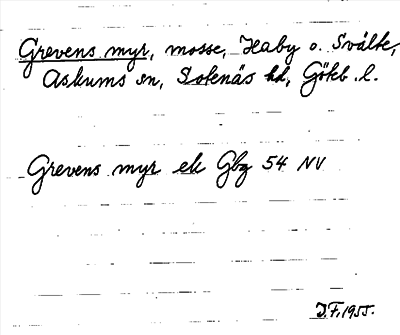 Grevens myr, mosse, Haby o. Svälte,
Askums sn, Sotenäs hd, Göteb. l.
Grevens myr ek Gbg 54 NV
J.F. 1955.